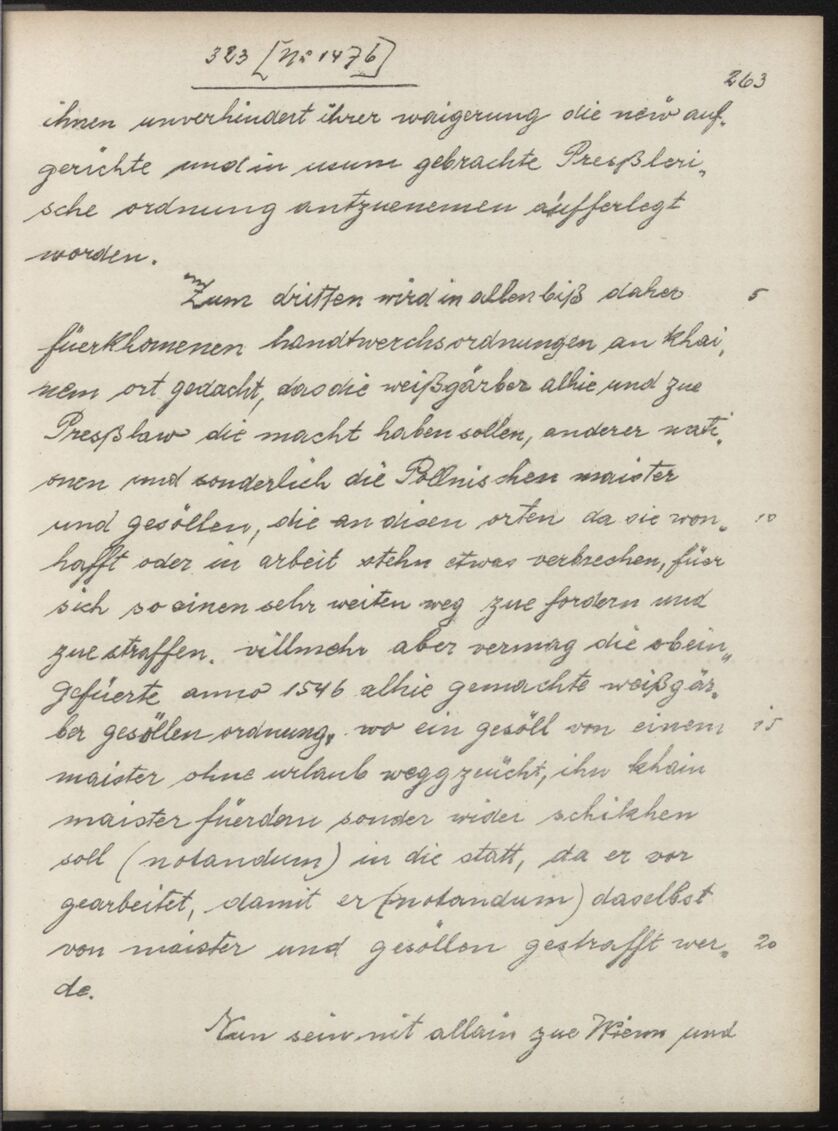 323 [No 1476]
263
ihnen unverhindert ihrer waigerung die new auf-
gerichte und in usum gebrachte Presßleri-
sche ordnung antzuenemen aufferlegt
worden.
Zum dritten wird in allen biß daher 5
füerkhomenen handtwerchsordnungen an khai-
nem ort gedacht, das die weißgärber alhie und zue
Presßlaw die macht haben sollen, anderer nati-
onen und sonderlich die Pollnischen maister
und gesöllen, die an disen orten da sie won- 10
hafft oder in arbeit stehn etwas verbrechen, füer
sich so einen sehr weiten weg zue fordern und
zue straffen. villmehr aber vermag die obein-
gefüerte anno 1546 alhie gemachte weißgär-
ber gesöllen ordnung, wo ein gesöll von einem 15
maister ohne urlaub weggzeücht, ihn khain
maister füerdern sonder wider schikhen
soll (notandum) in die statt, da er vor
gearbeitet, damit er (notandum) daselbst
von maister und gesöllen gestrafft wer- 20
de.
Nun sein nit allain zue Wienn und